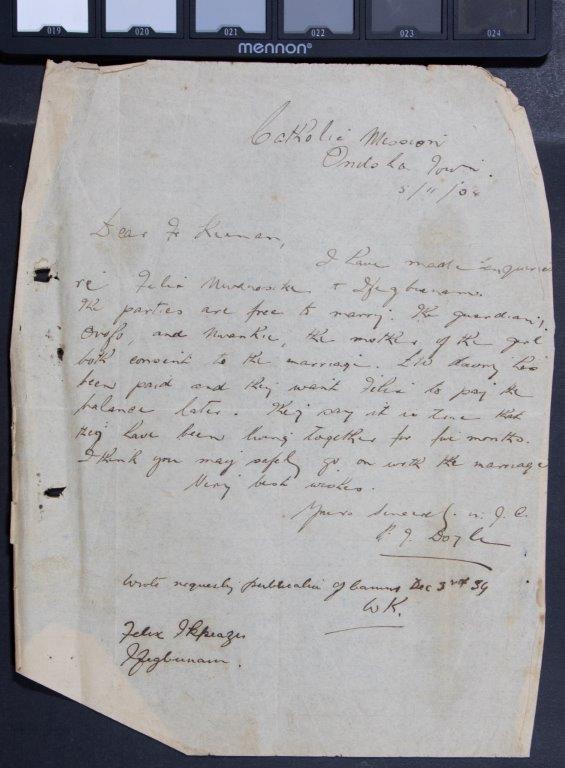 019 020 021 022 023 024
mennon®
Catholic Mission
Onitsha Town.
5/11/
Dear Fr Kiernan,
I have made enquiries
re Felix & Ifegbunam.
The parties are free to marry. The guardian,
and Nwankie, the mother of the girl
both consent to the marriage. dowry has
been paid and they want Felix to pay the
balance later. They say it is true that
they have been living together for five months.
I think you may safely go on with the marriage
Very best wishes.
Yours Sincerely in J.C.
P. J. Doyle
Wrote requesting publication of banns Dec 3rd 39
WK.
Felix Ikpeazu
Ifegbunam.